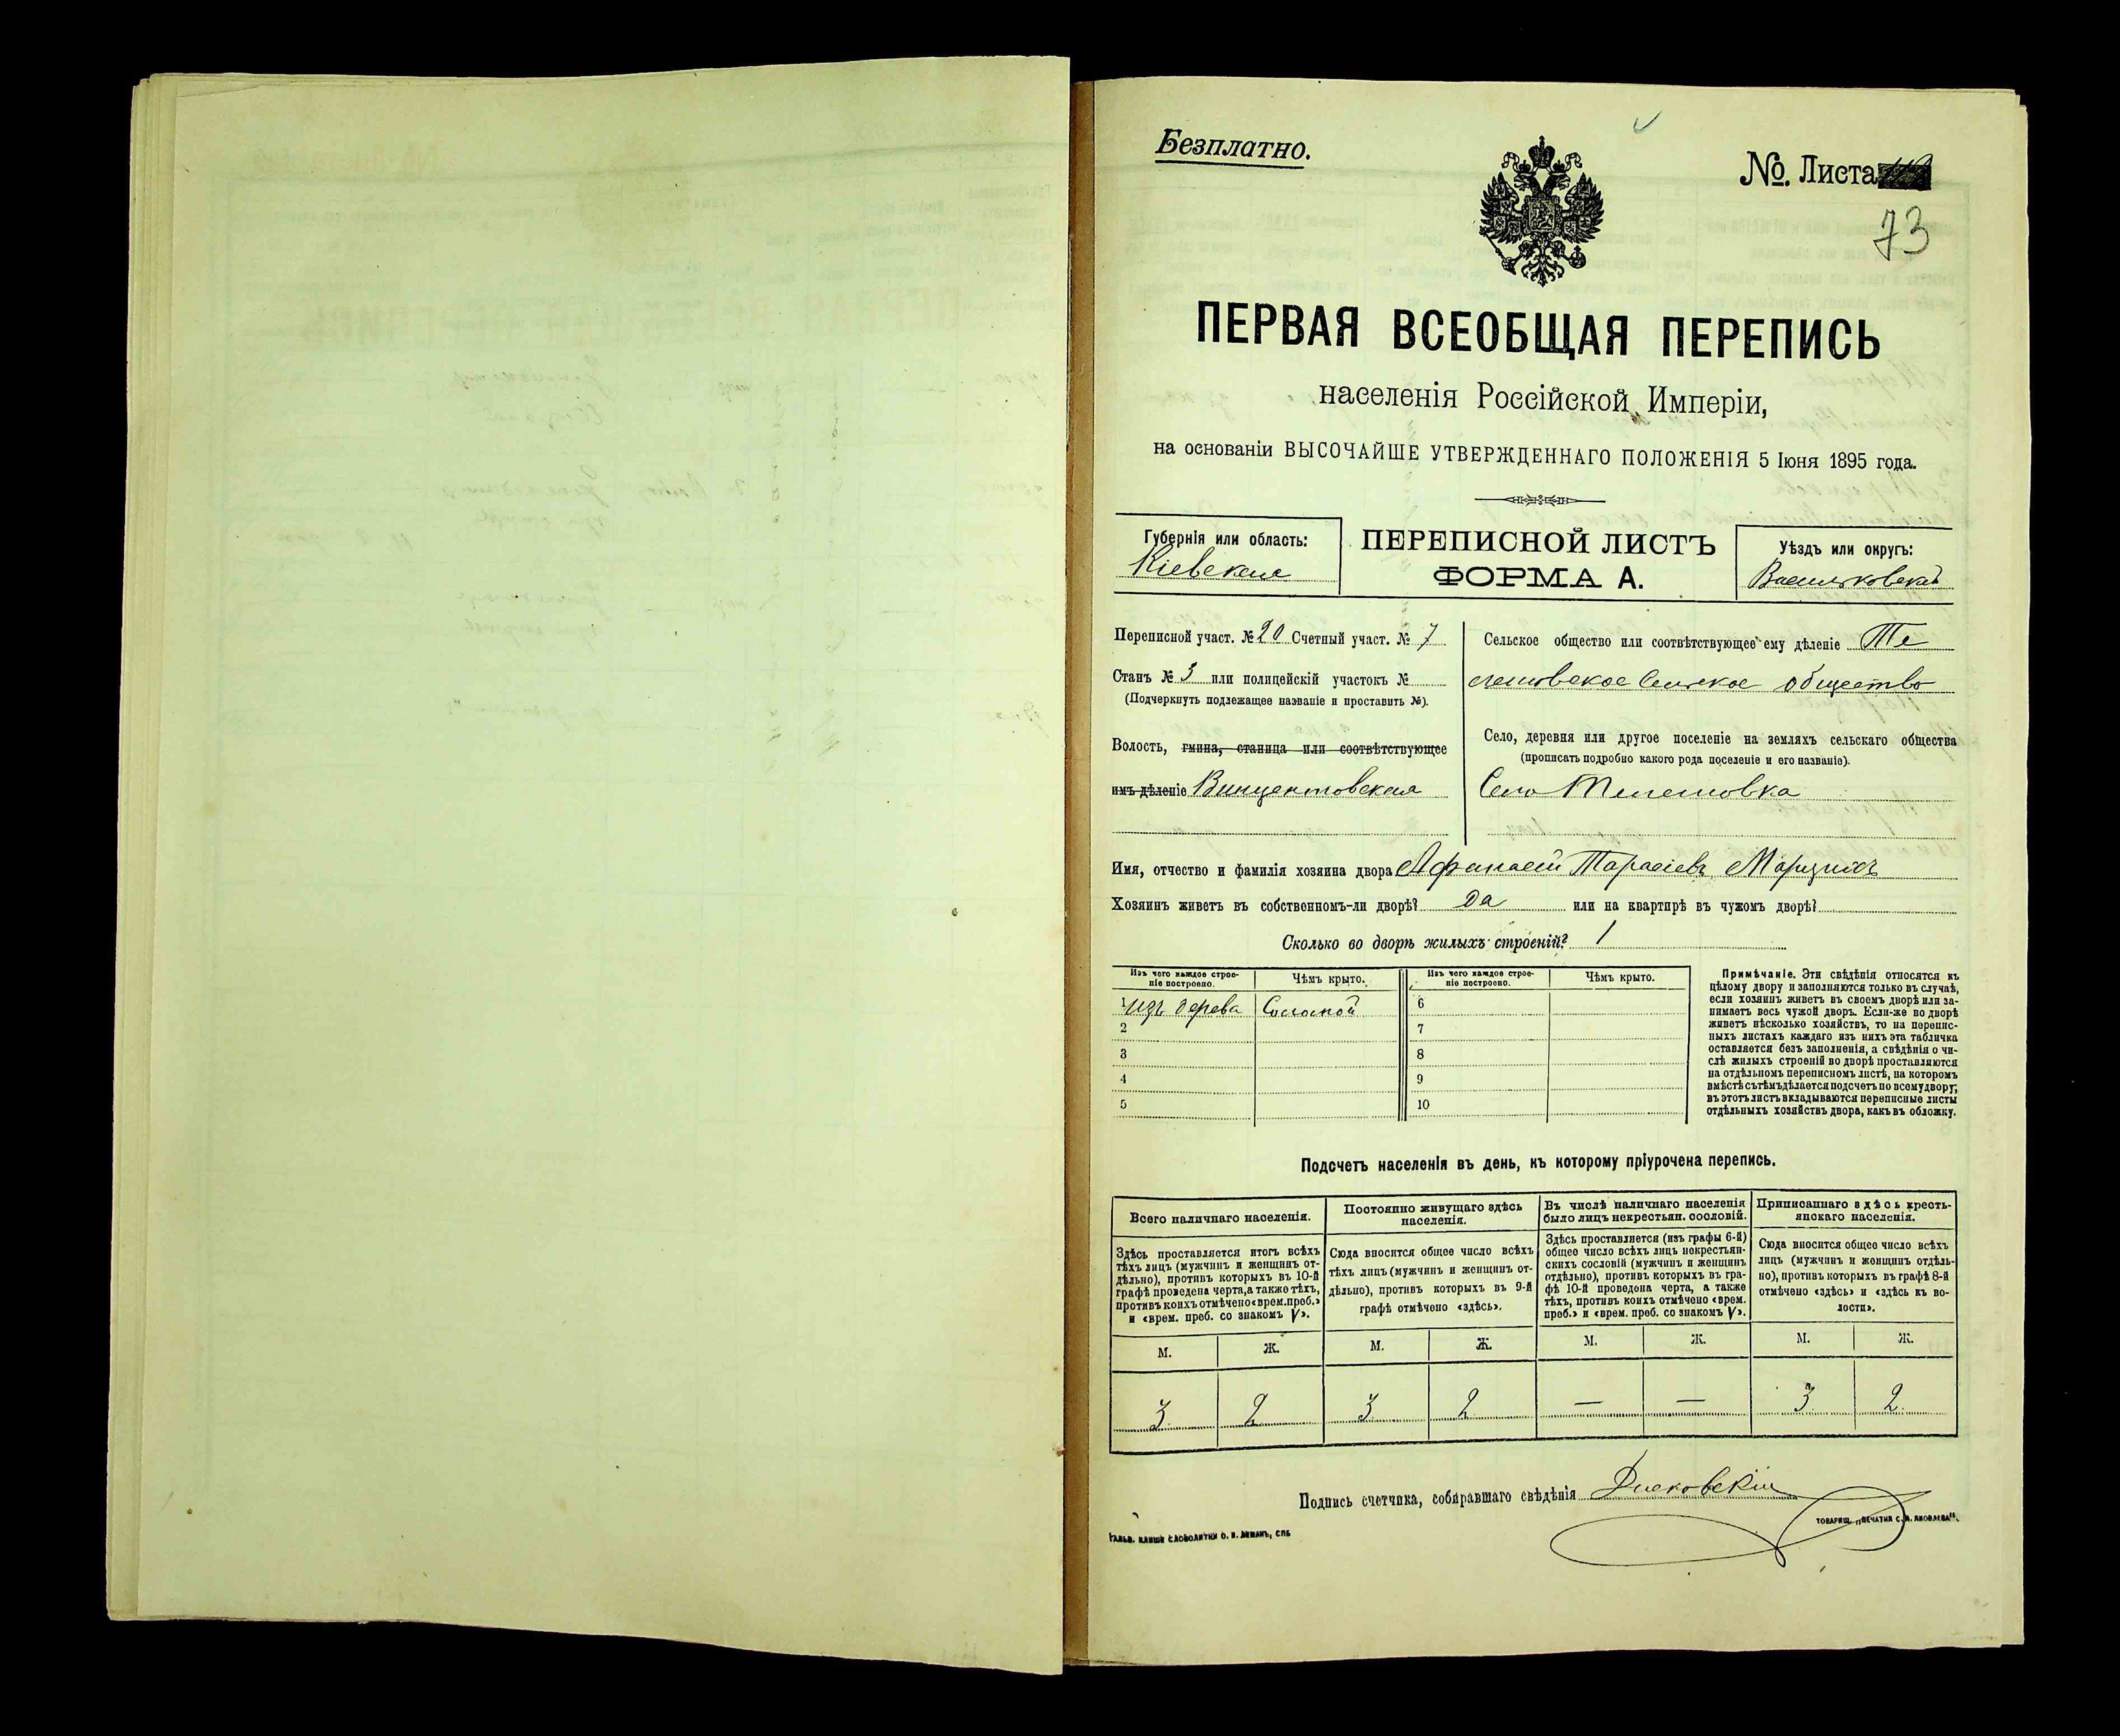 Безплатно.
№. Листа
73
ПЕРВАЯ ВСЕОБЩАЯ ПЕРЕПИСЬ
населенія Россійской Имперіи,
на основаніи ВЫСОЧАЙШЕ УТВЕРЖДЕННАГО ПОЛОЖЕНІЯ 5 Іюня 1895 года.
Губернія или область:
Кіевская
ПЕРЕПИСНОЙ ЛИСТЪ
ФОРМА А.
Уѣздъ или округъ:
Васильковскій
Переписной участ. № 20 Счетный участ. № 7
Станъ № 3 или полицейскій участокъ №
(Подчеркнуть подлежащее названіе и проставить №).
Волость, гмина, станица или соотвѣтствующее
имъ дѣленіе Винцентовская
Сельское общество или соотвѣтствующее ему дѣленіе Те
лешовское Сельское общество
Село, деревня или другое поселеніе на земляхъ сельскаго общества
(прописать подробно какого рода поселеніе и его названіе).
Село Телешовка
Имя, отчество и фамилія хозяина двора Афанасій Тарасіевъ
Хозяинъ живетъ въ собственномъ-ли дворѣ? да или на квартирѣ въ чужомъ дворѣ?
Сколько во дворѣ жилыхъ строеній? 1
Изъ чего каждое строе-
ніе построено.
Чѣмъ крыто.
Изъ чего каждое строе-
ніе построено.
Чѣмъ крыто.
1 изъ дерева Соломой
2
3
4
5
6
7
8
9
10
Примѣчаніе. Эти свѣдѣнія относятся къ
цѣлому двору и заполняются только въ случаѣ,
если хозяинъ живетъ въ своемъ дворѣ или за-
нимаетъ весь чужой дворъ. Если-же во дворѣ
живетъ нѣсколько хозяйствъ, то на перепис-
ныхъ листахъ каждаго изъ нихъ эта табличка
оставляется безъ заполненія, а свѣдѣнія о чи-
слѣ жилыхъ строеній во дворѣ проставляются
на отдѣльномъ переписномъ листѣ, на которомъ
вмѣстѣ съ тѣмъ дѣлается подсчетъ по всему двору;
въ этотъ листъ вкладываются переписные листы
отдѣльныхъ хозяйствъ двора, какъ въ обложку.
Подсчетъ населенія въ день, къ которому пріурочена перепись.
Всего наличнаго населенія.
Здѣсь проставляется итогъ всѣхъ
тѣхъ лицъ (мужчинъ и женщинъ от-
дѣльно), противъ которыхъ въ 10-й
графѣ проведена черта, а также тѣхъ,
противъ коихъ отмѣчено «врем. преб.»
и «врем. преб. со знакомъ V».
Постоянно живущаго здѣсь
населенія.
Сюда вносится общее число всѣхъ
тѣхъ лицъ (мужчинъ и женщинъ от-
дѣльно), противъ которыхъ въ 9-й
графѣ отмѣчено «здѣсь».
Въ числѣ наличнаго населенія
было лицъ некрестьян. сословій.
Здѣсь проставляется (изъ графы 6-й)
общее число всѣхъ лицъ некрестьян-
скихъ сословій (мужчинъ и женщинъ
отдѣльно), противъ которыхъ въ гра-
фѣ 10-й проведена черта, а также
тѣхъ, противъ коихъ отмѣчено «врем.
преб.» и «врем. преб. со знакомъ V».
Приписаннаго здѣсь кресть-
янскаго населенія.
Сюда вносится общее число всѣхъ
лицъ (мужчинъ и женщинъ отдѣль-
но), противъ которыхъ въ графѣ 8-й
отмѣчено «здѣсь» и «здѣсь къ во-
лости».
М. Ж. М. Ж. М. Ж. М. Ж.
3 2 3 2 — — 3 2
Подпись счетчика, собиравшаго свѣдѣнія
ГАЛЬВ. КЛИШЕ СЛОВОЛИТНИ О. И. ЛЕМАНЪ, СПБ
ТОВАРИЩ. „ПЕЧАТНЯ С. П. ЯКОВЛЕВА".